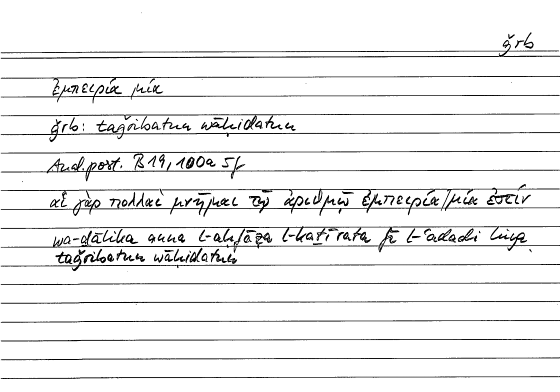 ǧrb
ἐμπειρία μία
ǧrb: taǧribatun wāḥidatun
Anal.post. B 19, 100a 5f
αἱ γὰρ πολλαὶ μνῆμαι τῷ ἀριθμῷ ἐμπειρία/μία ἐστίν
wa-ḏālika anna l-aḥfāẓa l-kaṯīrata fī l-ʿadadi hiya
taǧribatun wāḥidatun